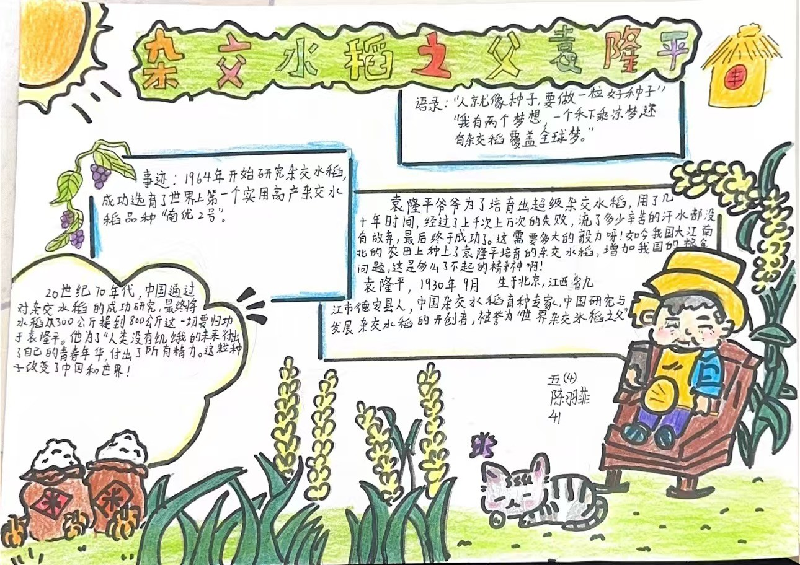 杂交水稻之父袁隆平
丰
语录:“人就像种子,要做一粒好种子”
“我有两个梦想,一个禾下乘凉梦,还
有杂交稻覆盖全球梦。”
事迹:1964年开始研究杂交水稻,
成功选育了世界上第一个实用高产杂交水
稻品种“南优2号”。
袁隆平爷爷为了培育出超级杂交水稻,用了几
十年时间,经过了上千次上万次的失败,流了多少辛苦的汗水都没
有放弃,最后终于成功了。这需要多大的毅力呀!如今我国大江南
北的农田上种上了袁隆平培育的杂交水稻,增加我国的粮食
问题,这是多么了不起的精神啊!
袁隆平,1930年9月 生于北京,江西省九
江市德安县人,中国杂交水稻育种专家,中国研究与
发展杂交水稻的开创者,被誉为“世界杂交水稻之父”
20世纪70年代,中国通过
对杂交水稻的成功研究,最终将
水稻从300公斤提到800公斤这一切要归功
于袁隆平。他为了“人类没有饥饿的未来”做出
了自己的青春年华,付出了所有精力。这些种
子改变了中国和世界!
五(4)
陈羽菲
41
米
米